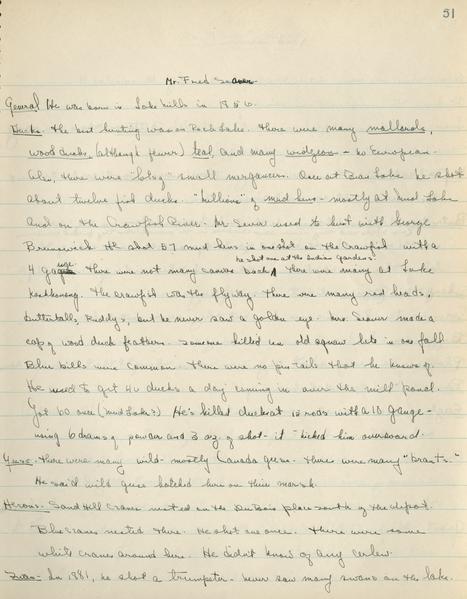 51
Mr. Fred Seaver
General He was born in Lake Mills in 1856.
Ducks. The best hunting was on Rock Lake. There were many mallards,
wood ducks, (although fewer) teal, and many widgeon - no European.
Also, there were "lots of" small mergansers. Once at Bean Lake he shot
about twelve fish ducks. "Millions" of mud hens - mostly at Mud Lake
and on the Crawfish River. Mr Seaver used to hunt with George
Brunswick He shot 57 mud hens in one shot on the Crawfish with a
he shot one at the Indian Gardens
4 gauge There were not many canvas back, there were many at Lake
Koshkonong. The crawfish was the flyway. There were many red heads,
buttertalls, Ruddys, but he never saw a golden eye. Mrs. Seaver made a
cap of wood duck feathers. Someone killed old squaw here in one fall
Blue bills were common. There were no pin-tails that he knows of.
He used to get 40 ducks a day coming in over the mill pond.
Got 60 once (mud Lake?) He's killed ducks at 12 rods with a 10 gauge -
using 6 drams of powder and 3 oz. of shot - it kicked him overboard.
Geese. There were many wild - mostly Canada geese - there were many "brants."
He said wild geese hatched here on this marsh.
Herons. Sand Hill Cranes nested on the DuBois place south of the depot.
Blue Cranes nested there. He shot one once. There were some
white cranes around here. He didn't know of any curlew.
Swan - In 1881, he shot a trumpeter - never saw many swans on the lake.